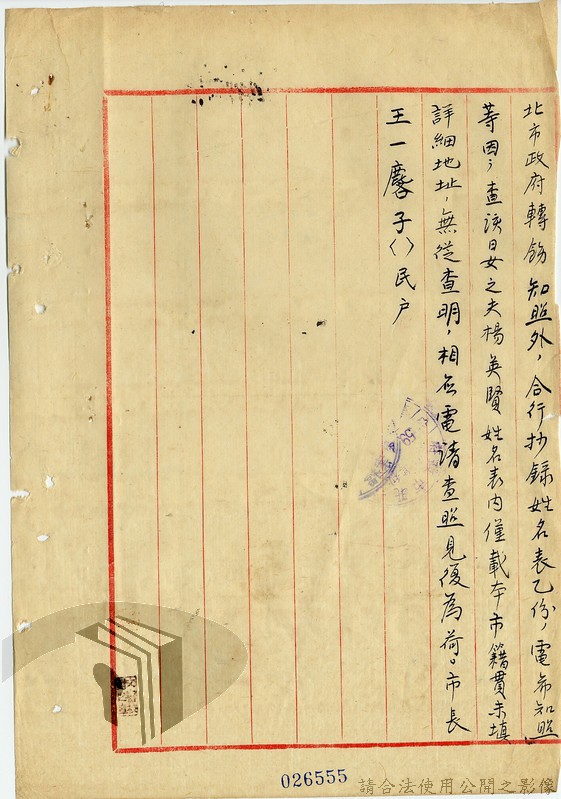 北市政府轉飭知照外，合行抄錄姓名表乙份，電希知照
等因，查該日女之夫楊英賢姓名表內僅載本市籍貫未填
詳細地址，無從查明，相應電請查照見復為荷。市長
王一麐子〈〉民戶
026555
請合法使用公開之影像